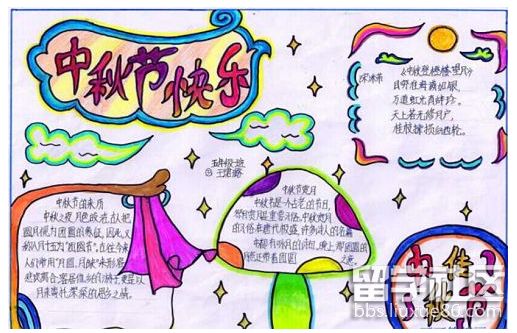 中秋节快乐
《中秋登楼望月》
宋·米芾
目穷淮海满如银，
万道虹光育蚌珍。
天上若无修月户，
桂枝撑损向西轮。
五年级班
中秋节的来历
中秋之夜，月色皎洁，古人把
圆月视为团圆的象征，因此，又
称八月十五为“团圆节”。古往今来，
人们常用“月圆、月缺”来形容
悲欢离合，客居他乡的游子，更是以
月来寄托深深的思乡之情。
中秋节赏月
中秋节是一个古老的节日，
祭月赏月是重要习俗。中秋赏月
的习俗在唐代极盛，许多诗人的名篇
中都有咏月的诗句，晚上，那圆圆的
留学社区
bbs.liuxue86.com